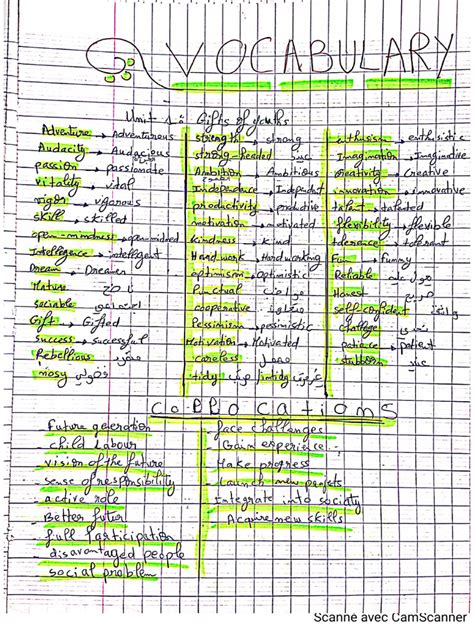 VOCABULARY
Unit 1: Gifts of youths
Adventure → Adventurous
Audacity → Audacious
passion → passionate
vitality → vital
vigor → vigorous
skill → skilled
open-mindness → open-minded
Intelligence → intelligent
Dream → Dreamer
Mature
sociable
Gift → Gifted
Success → sucessful
Rebellious
nosy فضولي
strength → strong
strong-headed عنيد
Ambition → Ambitious
Independence → Independent
productivity → productive
motivation → motivated
kindness → kind
Hard work → Hard working
optimism → optimistic
Punctual
cooperative
Pessimism → pessimistic
Motivation → Motivated
careless مهمل
tidy
Imagination → Imaginative
creativity → creative
innovation → innovative
talent → talented
flexibility → flexible
tolerance → tolerant
Fun → funny
Reliable
Honest
self-confident
patience → patient
stubborn عنيد
Collocations
future generation
child Labour
vision of the future
sense of responsibility
active role
full Participation
disavantaged people
social problem
face challenges
Make progress
Integrate into society
Acquire new skills
Scanné avec CamScanner